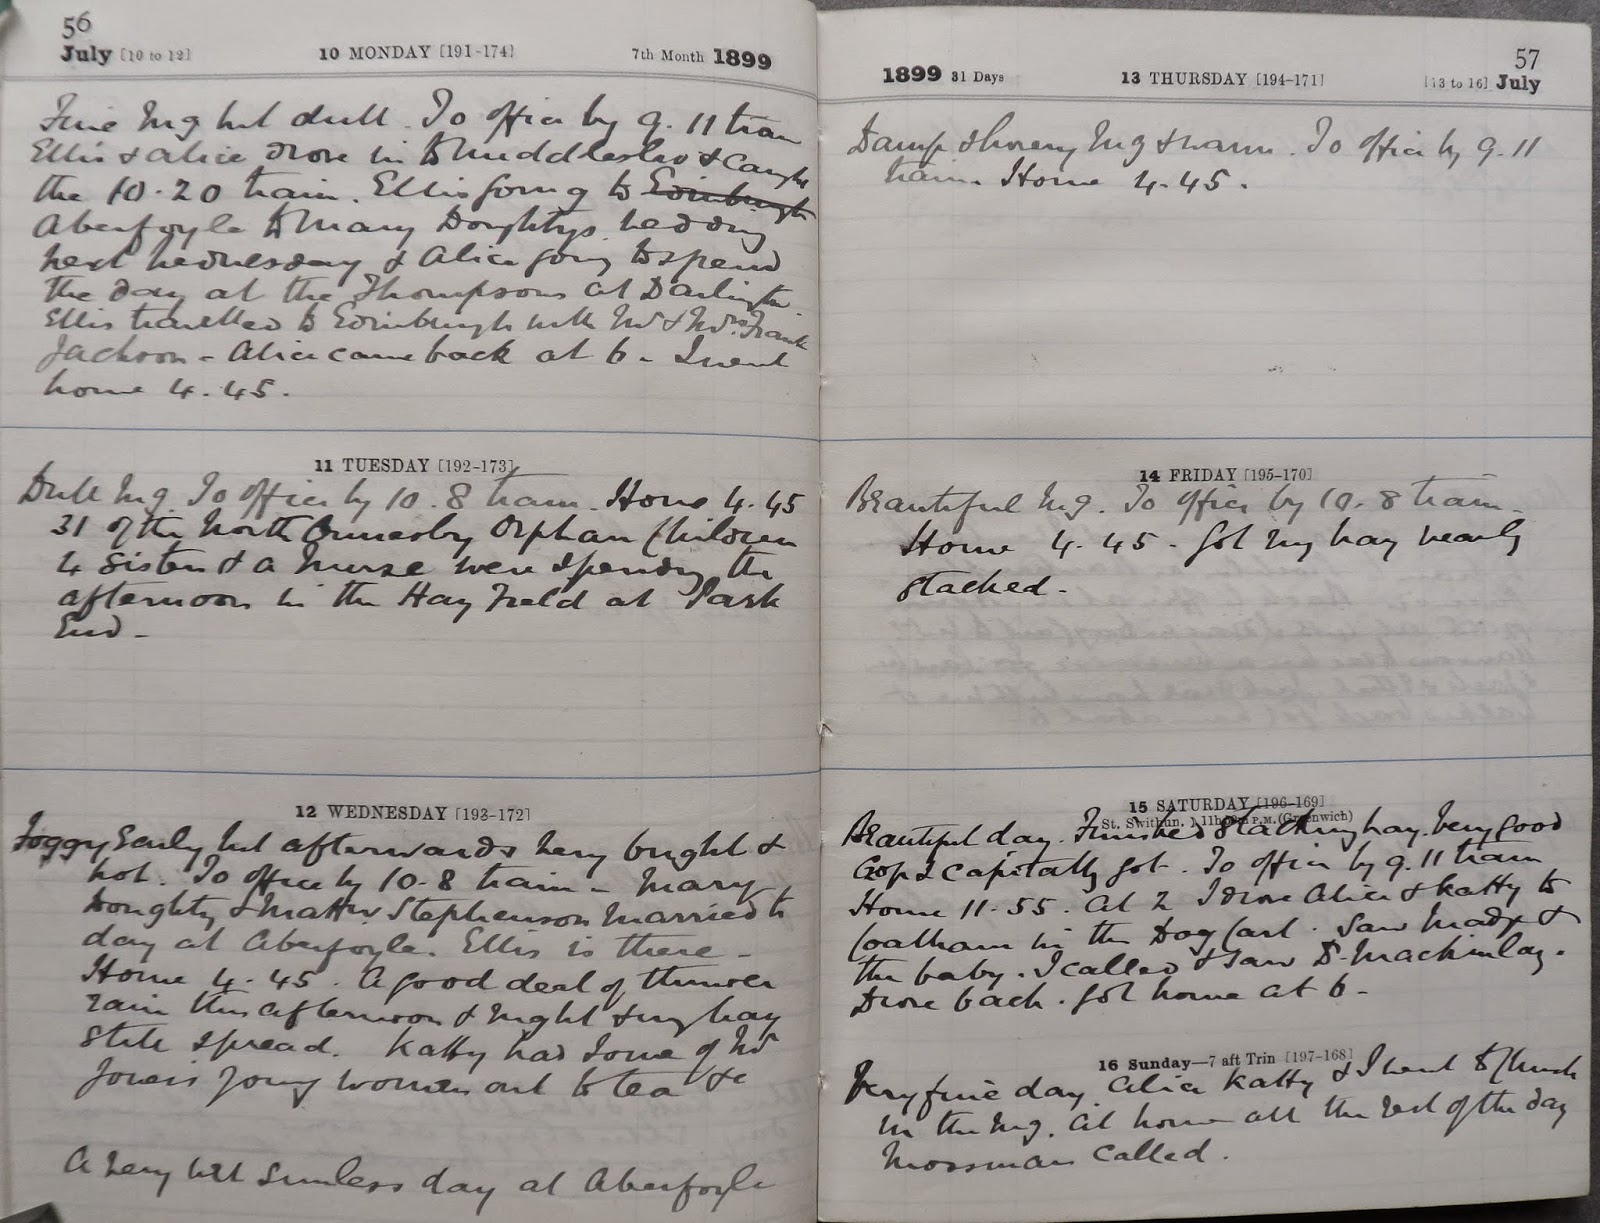 56
July [10 to 12] 10 MONDAY [191-174] 7th Month 1899
Fine Mg but dull. To office by 9.11 train
Ellis & Alice drove in to Middlesbro & caught
the 10.20 train. Ellis going to Edinburgh
Aberfoyle to Mary Doughtys wedding
next Wednesday & Alice going to spend
the day at the Thompsons at Darlington
Ellis travelled to Edinburgh with Mr & Mrs Frank
Jackson - Alice came back at 6 - I went
home 4.45.
11 TUESDAY [192-173]
Dull Mg. To office by 10.8 train. Home 4.45
31 of the North Ormesby Orphan Children
4 Sisters & a Nurse were spending the
afternoon in the Hay Field at Park
End -
12 WEDNESDAY [193-172]
Foggy Early but afterwards very bright &
hot. To office by 10.8 train - Mary
Doughty & Matthew Stephenson married to
day at Aberfoyle. Ellis is there -
Home 4.45. A good deal of thunder
rain this afternoon & night & my hay
still spread. Katty had some of Mr
Jones's young women out to tea &c
A very wet sunless day at Aberfoyle
57
1899 31 Days 13 THURSDAY [194-171] [13 to 16] July
Damp showery Mg & warm. To office by 9.11
train. Home 4.45.
14 FRIDAY [195-170]
Beautiful Mg. To office by 10.8 train -
Home 4.45 - Got my hay nearly
stacked -
15 SATURDAY [196-169]
St. Swithun. P.M. (Greenwich)
Beautiful day. Finished stacking hay. Very good
Crop & capitally got. To office by 9.11 train
Home 11.55. At 2 I drove Alice & Katty to
Coatham in the Dog Cart. Saw Madge &
the baby. I called & saw Dr Mackinlay.
Drove back. Got home at 6 -
16 Sunday—7 aft Trin [197-168]
Very fine day. Alice Katty & I went to Church
in the Mg. At home all the rest of the day
Mossman called.